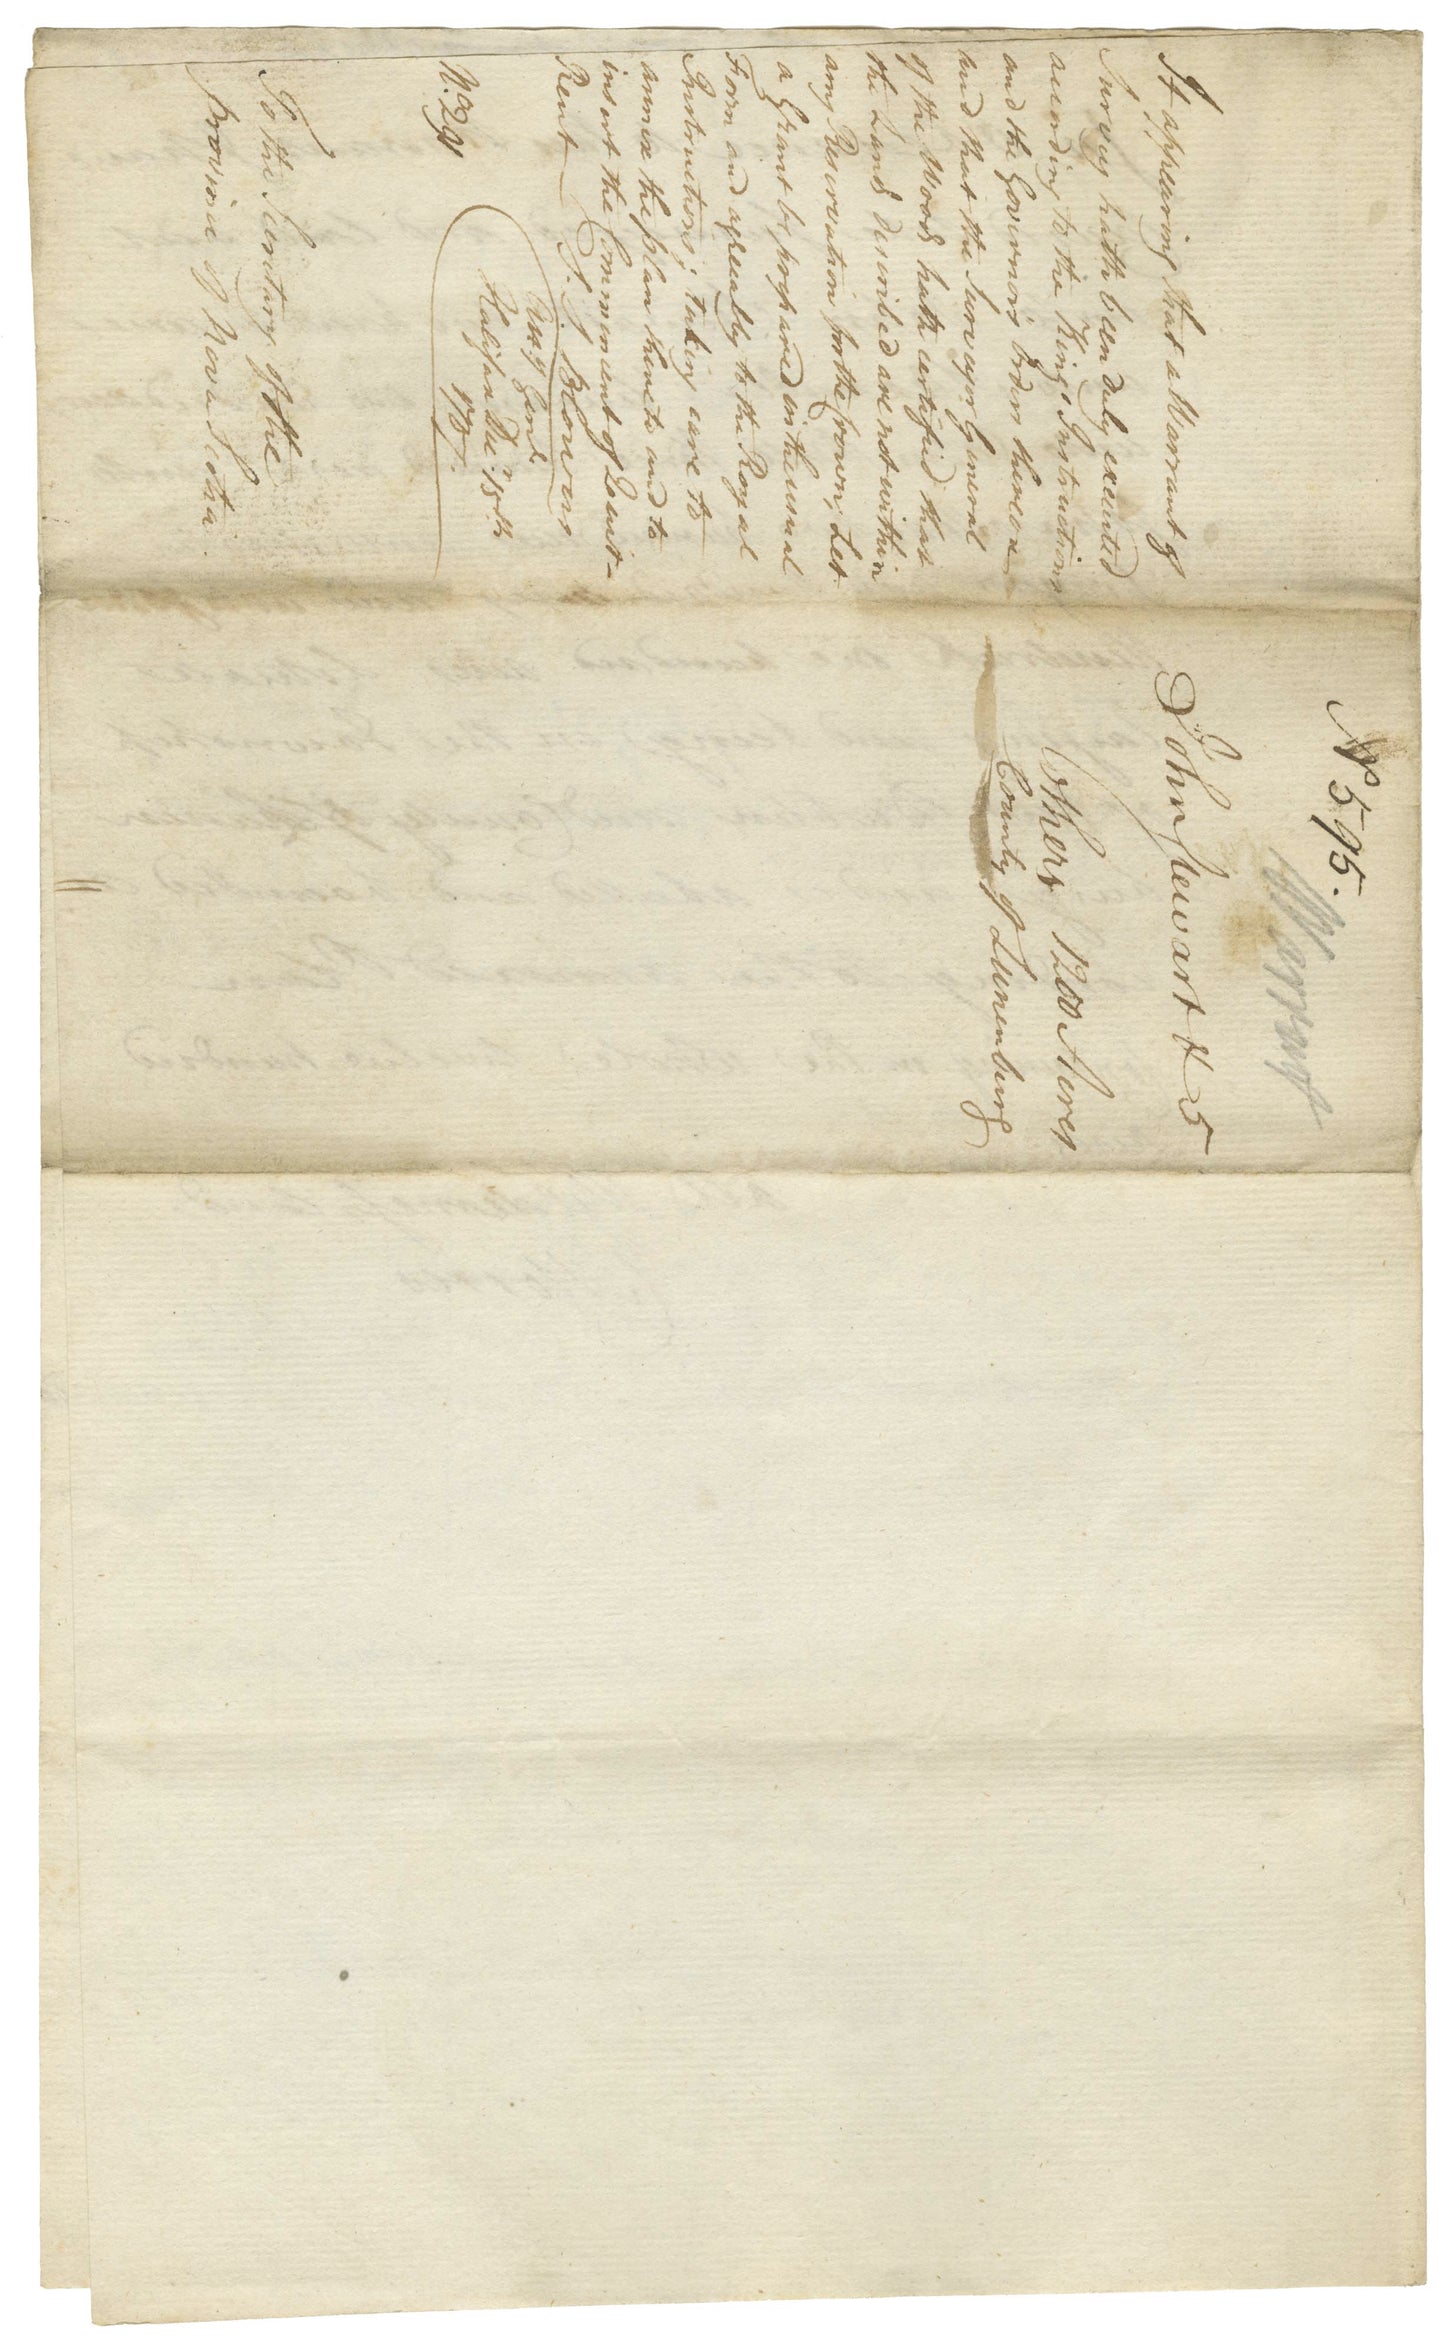 It appearing that a Warrant of
Survey hath been duly executed
according to the Kings Instructions
and the Governors Order thereon
and that the Surveyor General
of the Woods hath certified that
the Lands described are not within
any Reservation for the Crown; Let
a Grant be prepared in the usual
Form and agreeably to the Royal
Instructions; taking care to
annex the plan thereto and to
insert the Commencment of Quit-
Rent
S. S. Blowers
Atty Genl
Halifax Decr 15th
To the Secretary of the
Province of Nova Scotia.
No 595.
Warrant
John Stewart & 5
Others 1200 Acres
County of Lunenburg